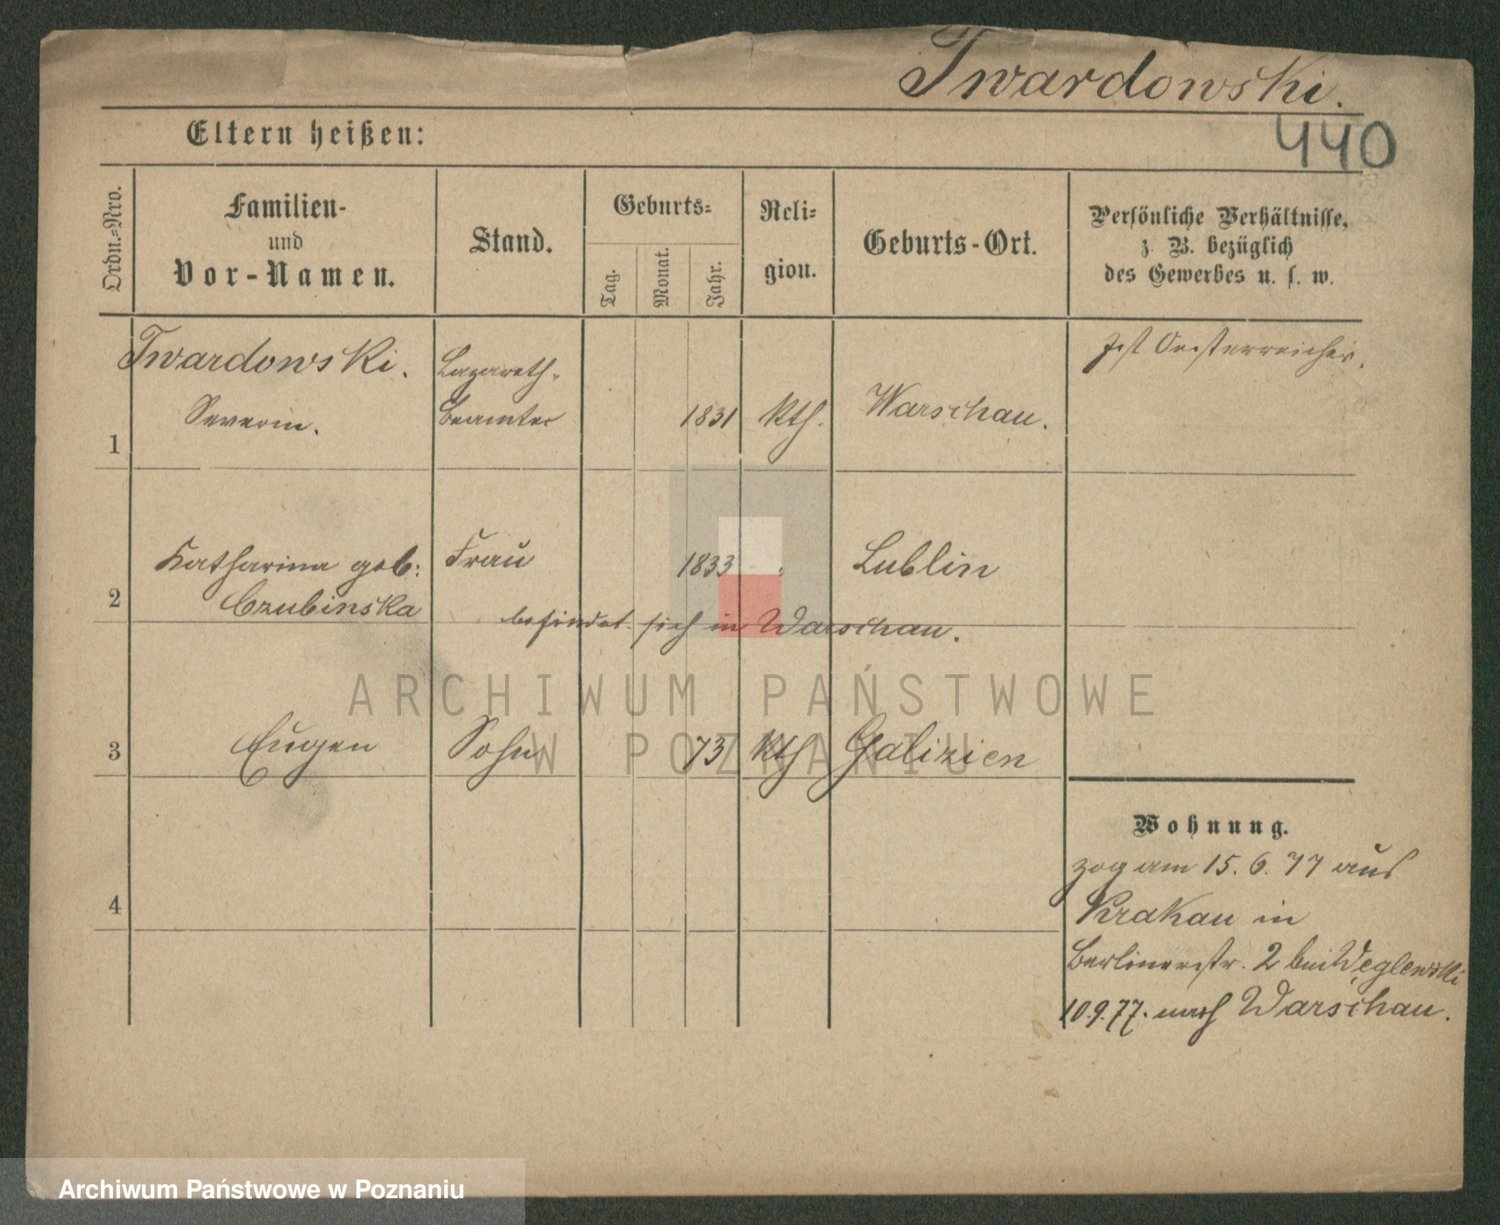 Twardowski.
440
Eltern heißen:
Ordn.=Nro.
Familien-
und
Vor-Namen.
Stand.
Geburts=
Tag.
Monat.
Jahr.
Reli=
gion.
Geburts-Ort.
Persönliche Verhältnisse,
z. B. bezüglich
des Gewerbes u. s. w.
1
Twardowski.
Severin.
Lazareth-
beamter
1831
kth.
Warschau.
Ist Oesterreicher.
2
Katharina geb:
Czubinska
Frau
1833
"
Lublin
befindet sich in Warschau.
3
Eugen
Sohn
73
kth
Galizien
4
Wohnung.
zog am 15. 6. 77 aus
Krakau in
Berlinerstr. 2 bei Węglewski
10.9.77. nach Warschau.
ARCHIWUM PAŃSTWOWE
W POZNANIU
Archiwum Państwowe w Poznaniu